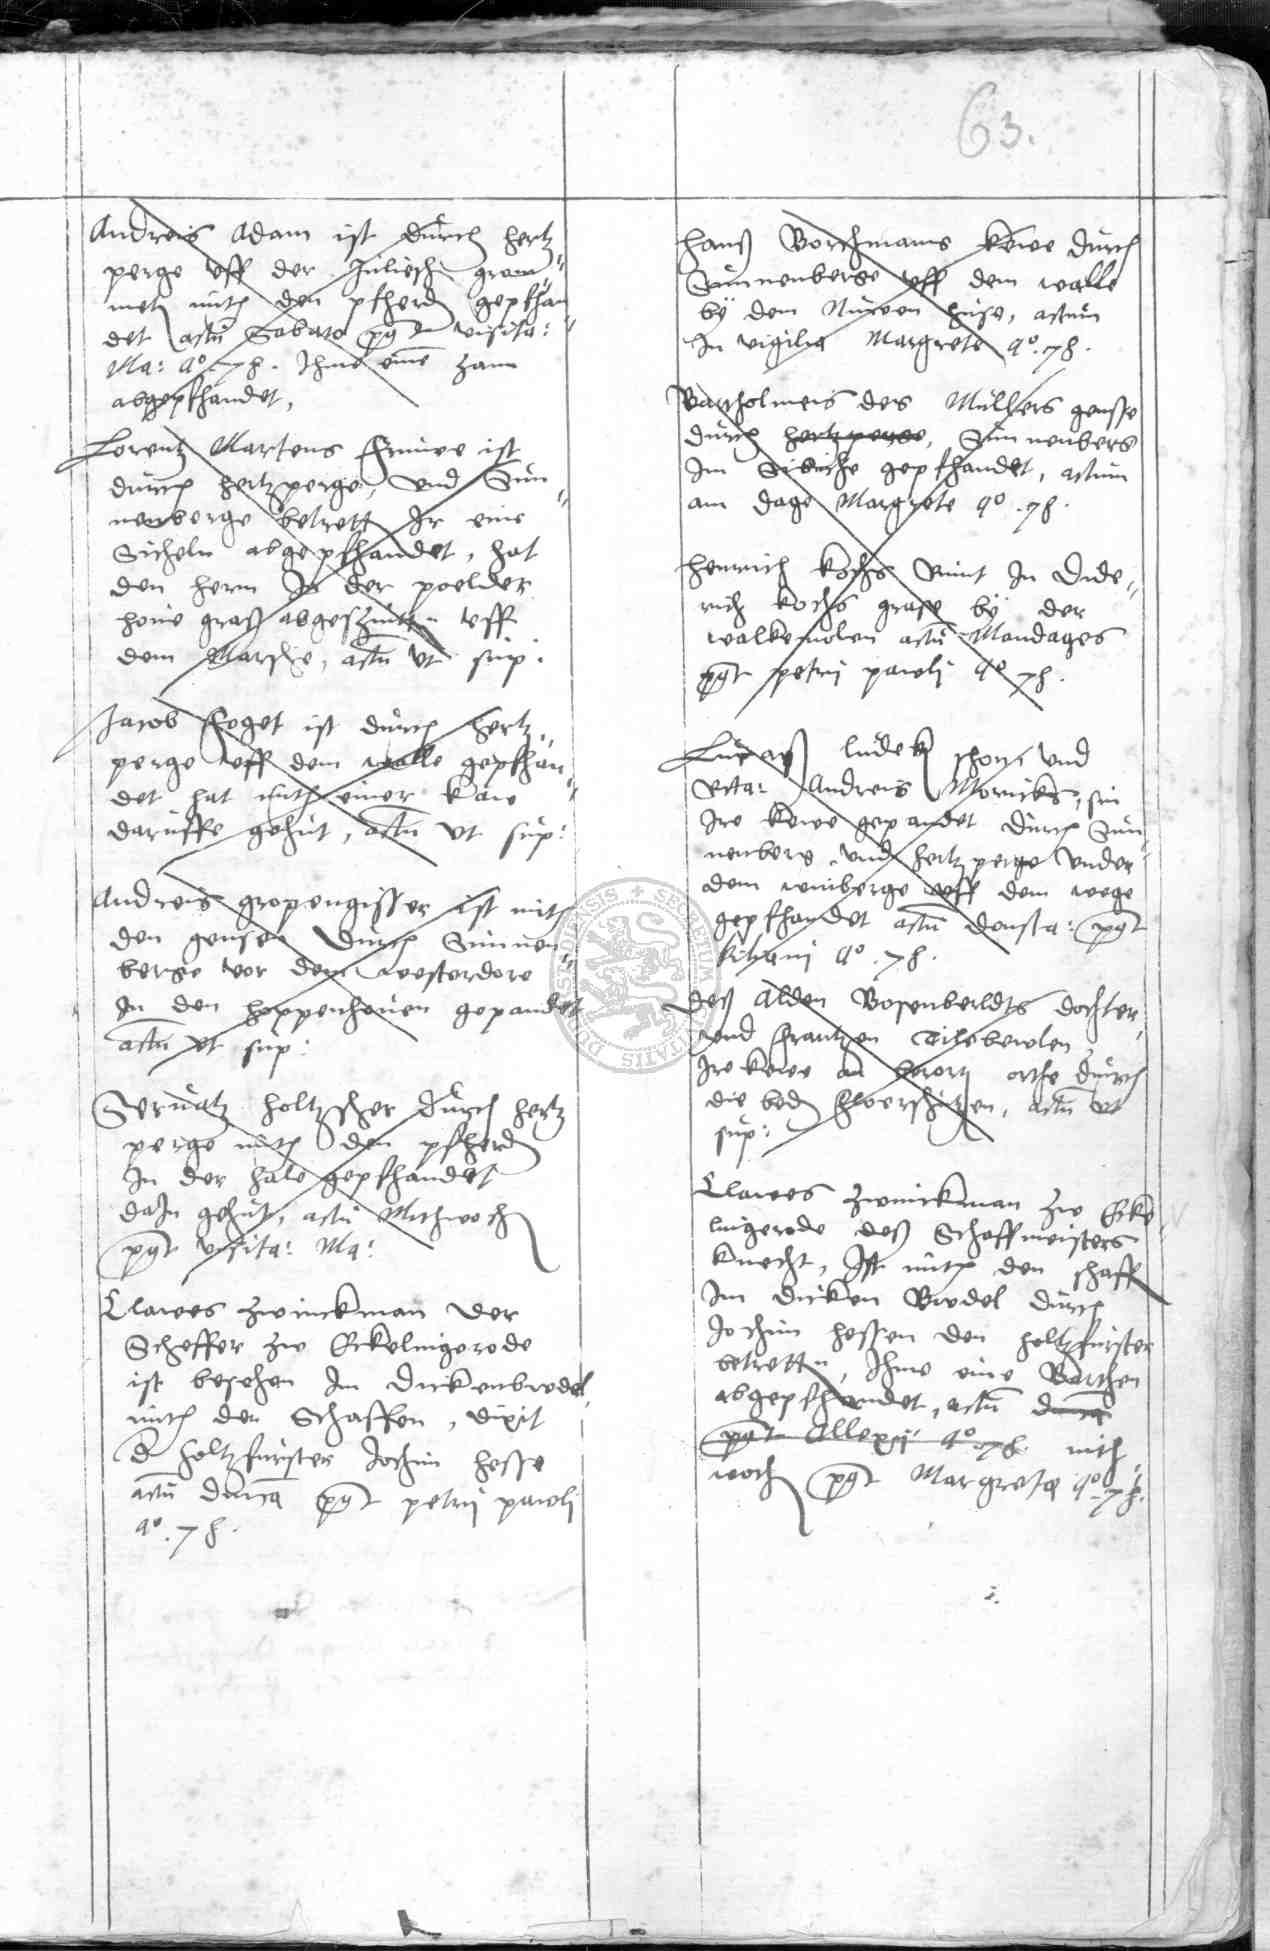 63.
Andreis Adam ist durch hertz„
perge uff der
mith den pfherd gepfhan„
det actu Sabato pq̄t visita:
Ma: a⁰. 78. Ihme eine zam
abgepfhandet,
Lorentz Martens frauwe ist
durch hertzperge, und Sun„
nenberge betrett Ir eine
Sicheln abgepfhandet, hat
den herrn In der poelder
graß abgeschnitten uff
dem Marsche, actu ut sup:
Jacob ffoget ist durch hertz„
perge uff dem walle gepfhan„
det hat mith einer kaw
daruffe gehut, actu ut sup:
Andreis gropengisser ist mith
den gensen durch Sunnen„
berge vor dem westerdore
In den hoppenhouen gepandet
actu ut sup:
Seruatz holtzscher durch hertz
perge mith den pfherd
In der hale gepfhandet
gehut, actu Mithwoch
pq̄t visita: Ma:
Clawes Zwinckman der
Scheffer zw Eckelingerode
ist besehen Im Dickenbrodel
mith der Schaffen, dixit
d holtzfurster Jochim hesse
actu pq̄t petrij pawlj
a⁰. 78.
hanß Borchmans kewe durch
Sunnenberge uff dem walle
by dem Nuwen huse, actum
In vigilia Margrete a⁰. 78.
Bartholmeis des Mullers gensse
durch hertzperge, Sunnenberg
Im gepfhandet, actum
am dage Margrete a⁰. 78.
henrich kochs Rint In Dide„
rich kochs grase by der
walkemolen actu Mandages
pq̄t petrij pawlj a⁰ 78.
Lucas ludek schon und
Andreis Moricks, sin
Ire kewe gepandet durch Sun„
nenberg und hertzperge under
dem winberge uff dem wege
gepfhandet actu donsta: pq̄t
kilyani a⁰. 78.
deß Alden Bosenberldts dochter,
und frantzen Tilebewlen
Ire kewe an berort orthe durch
die bede ffloerschutzen, actu ut
sup:
Clawes Zwinckman zw Ecke„
lingerode deß Scheffmeisters
knecht, Ist mith den schaff
Im dicken Brodel durch
Jochim hessen den holtzfurster
betretten, Ihme eine Barthen
abgepfhandet, actu
pq̄t Allexij a⁰. 78. mith„
woch pq̄t Margreta a⁰. 78.